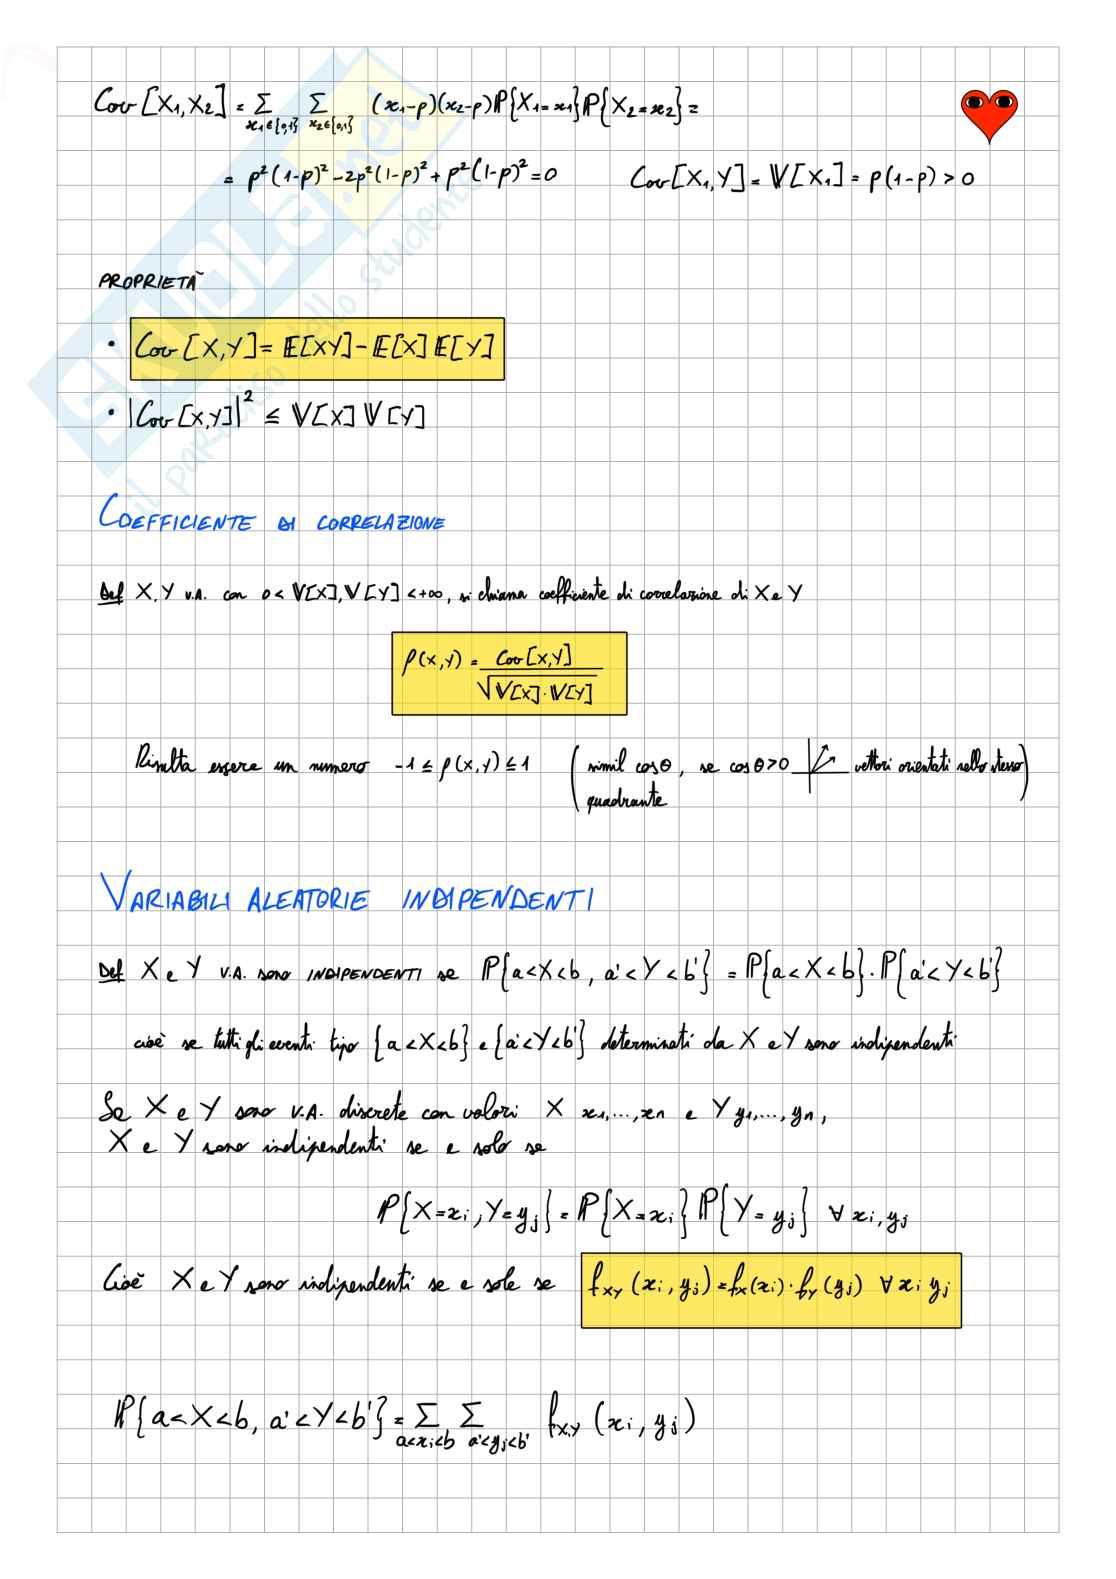 Cov[X₁,X₂] = Σ_{x₁∈{0,1}} Σ_{x₂∈{0,1}} (x₁-p)(x₂-p)ℙ{X₁=x₁}ℙ{X₂=x₂} =
= p²(1-p)² - 2p²(1-p)² + p²(1-p)² = 0 Cov[X₁,Y] = 𝕍[X₁] = p(1-p) > 0
PROPRIETÀ
• Cov[X,Y] = 𝔼[XY] - 𝔼[X]𝔼[Y]
• |Cov[X,Y]|² ≤ 𝕍[X]𝕍[Y]
COEFFICIENTE DI CORRELAZIONE
Def X,Y V.A. con 0 < 𝕍[X],𝕍[Y] < +∞, si chiama coefficiente di correlazione di X e Y
ρ(X,Y) = Cov[X,Y] / √(𝕍[X]·𝕍[Y])
Risulta essere un numero -1 ≤ ρ(X,Y) ≤ 1 (simil cosθ, se cosθ>0 vettori orientati nello stesso
quadrante)
VARIABILI ALEATORIE INDIPENDENTI
Def X e Y V.A. sono INDIPENDENTI se ℙ{a<X<b, a'<Y<b'} = ℙ{a<X<b}·ℙ{a'<Y<b'}
cioè se tutti gli eventi tipo {a<X<b} e {a'<Y<b'} determinati da X e Y sono indipendenti
Se X e Y sono V.A. discrete con valori X x₁,...,xn e Y y₁,...,yn,
X e Y sono indipendenti se e solo se
ℙ{X=xᵢ, Y=yⱼ} = ℙ{X=xᵢ}ℙ{Y=yⱼ} ∀ xᵢ,yⱼ
Cioè X e Y sono indipendenti se e solo se f_{XY}(xᵢ, yⱼ) = f_X(xᵢ)·f_Y(yⱼ) ∀ xᵢ yⱼ
ℙ{a<X<b, a'<Y<b'} = Σ_{a<xᵢ<b} Σ_{a'<yⱼ<b'} f_{X,Y}(xᵢ, yⱼ)
SKUOLA.net
il paradiso dello studente